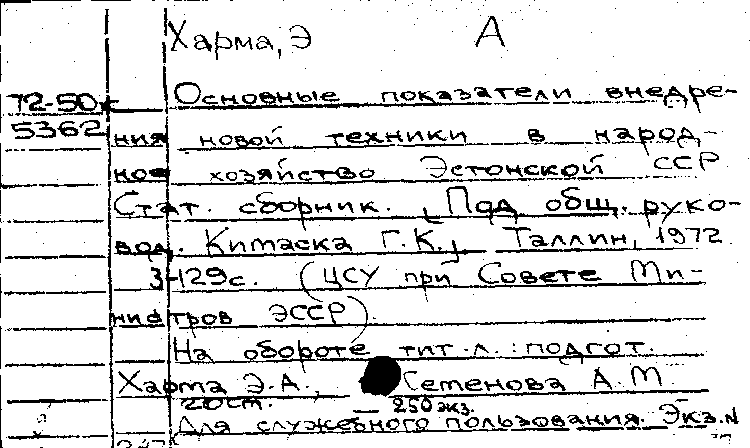 Харма, Э А
72-50к
5362
Основные показатели внедре-
ния новой техники в народ-
ное хозяйство Эстонской ССР
Стат. сборник. [Под общ. руко-
вод. Китаска Г.К.]. Таллин, 1972
129с. (ЦСУ при Совете Ми-
нистров ЭССР).
На обороте тит.л.: подгот.
Харма Э.А., Семенова А.М
20см. — 250экз.
Для служебного пользования. Экз.N